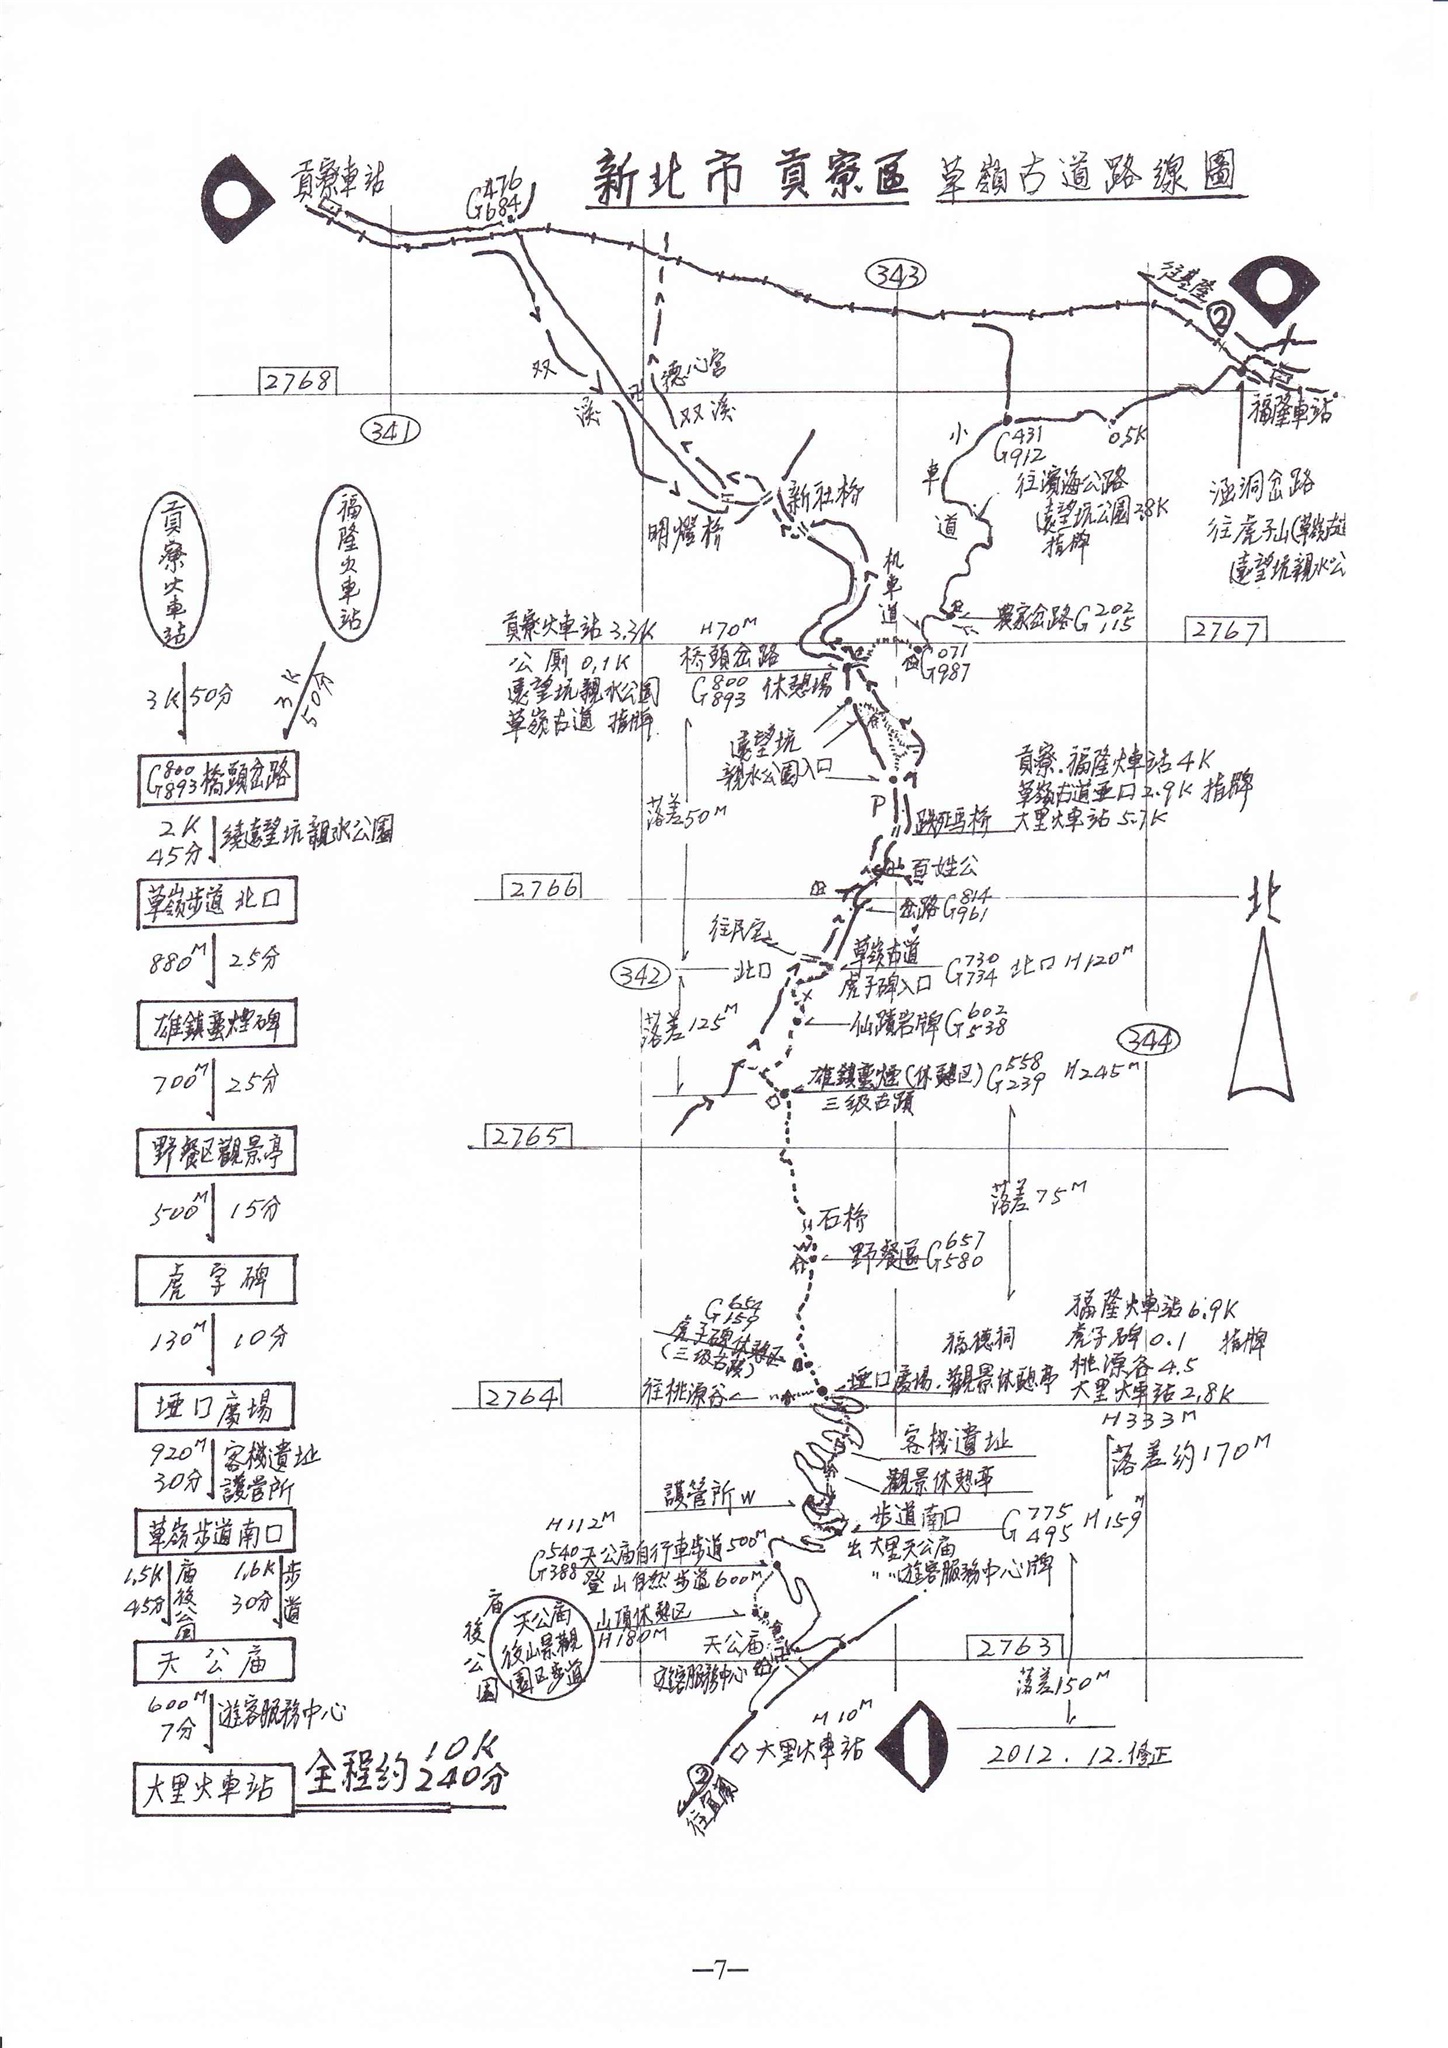 新北市 貢寮區 草嶺古道路線圖
貢寮車站
G 476 684
343
往基隆
2
2768
341
双
溪
德心宮
双溪
福隆車站
小
車
道
G 431 912
0.5K
往濱海公路
遠望坑公園 3.8K
指牌
涵洞岔路
往虎子山(草嶺古道
遠望坑親水公
新社桥
明燈桥
机
車
道
農家岔路 G 202 115
2767
G 071 987
貢寮火車站 3.3K
公厠 0.1K
遠望坑親水公園
草嶺古道 指牌
H70M
橋頭岔路
G 800 893 休憩場
遠望坑
親水公園入口
落差50M
貢寮.福隆火車站 4K
草嶺古道亚口 2.9K 指牌
大里火車站 5.7K
P
跌死馬桥
百姓公
2766
岔路 G 814 961
往民宅
342
北口
草嶺古道
虎字碑入口 G 730 734 北口 H120M
落差125M
仙蹟岩牌 G 602 538
344
雄鎮蠻煙(休憩区) G 558 239 H245M
三級古蹟
2765
落差75M
石桥
野餐區 G 657 580
G 654 159
虎字碑休憩区
(三級古蹟)
福德祠
福隆火車站 6.9K
虎字碑 0.1 指牌
桃源谷 4.5
大里火車站 2.8K
往桃源谷
埡口廣場.觀景休憩亭
2764
H333M
落差約170M
客棧遺址
觀景休憩亭
護管所 W
步道南口 G 775 495 H159M
出大里天公庙
〃 〃遊客服務中心牌
H112M
G 540 388 天公庙自行車步道500M
登山自然步道600M
庙後公園
天公庙
後山景觀
園区步道
山頂休憩区
H180M
天公庙
遊客服務中心
2763
落差150M
H10M
大里火車站
2
往宜蘭
2012.12.修正
北
貢寮火車站
福隆火車站
3K 50分
3K 50分
G 800 893 橋頭岔路
2K
45分 繞遠望坑親水公園
草嶺步道北口
880M 25分
雄鎮蠻煙碑
700M 25分
野餐区觀景亭
500M 15分
虎字碑
130M 10分
埡口廣場
920M 客棧遺址
30分 護管所
草嶺步道南口
1.5K 45分 庙後公園
1.6K 30分 步道
天公庙
600M
7分 遊客服務中心
大里火車站
全程約 10K 240分
—7—